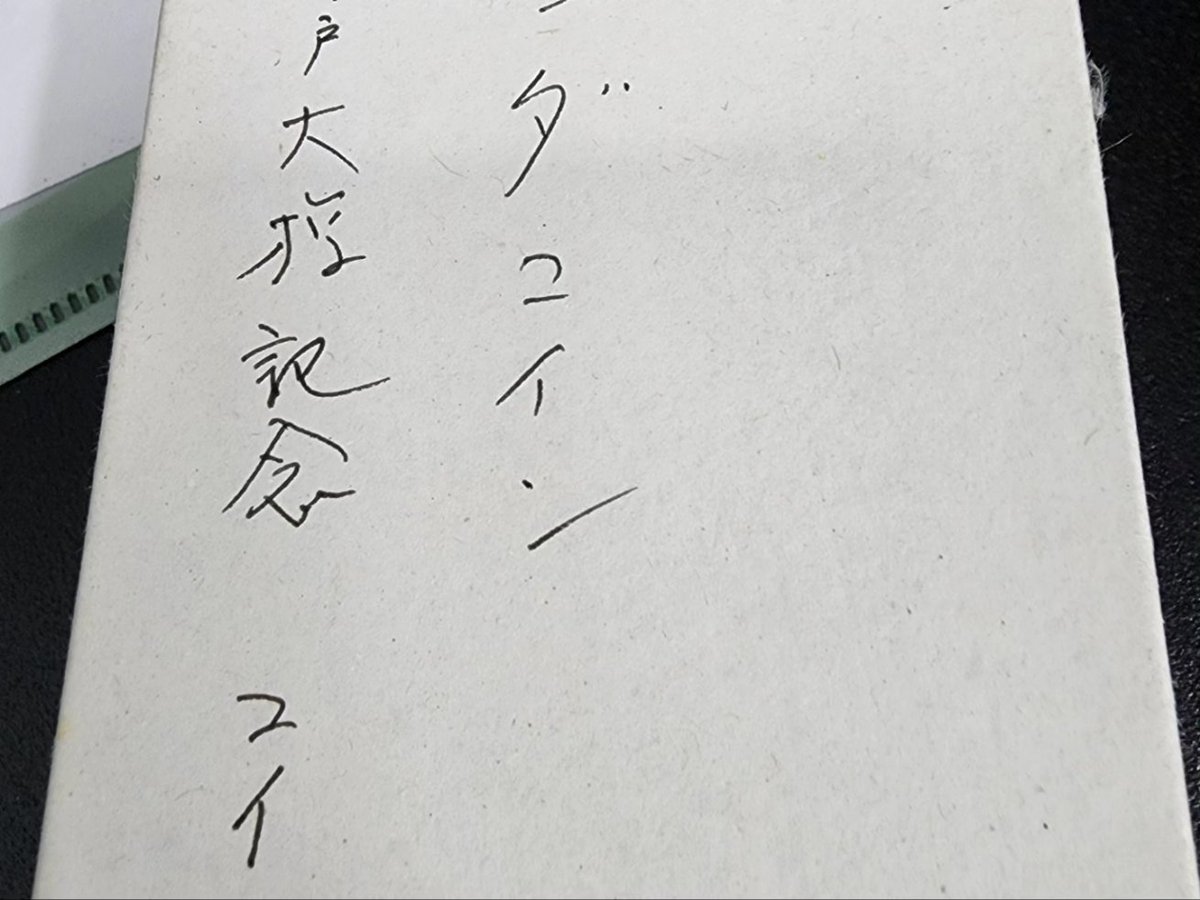 ダコイン
戸大橋記念 コイ